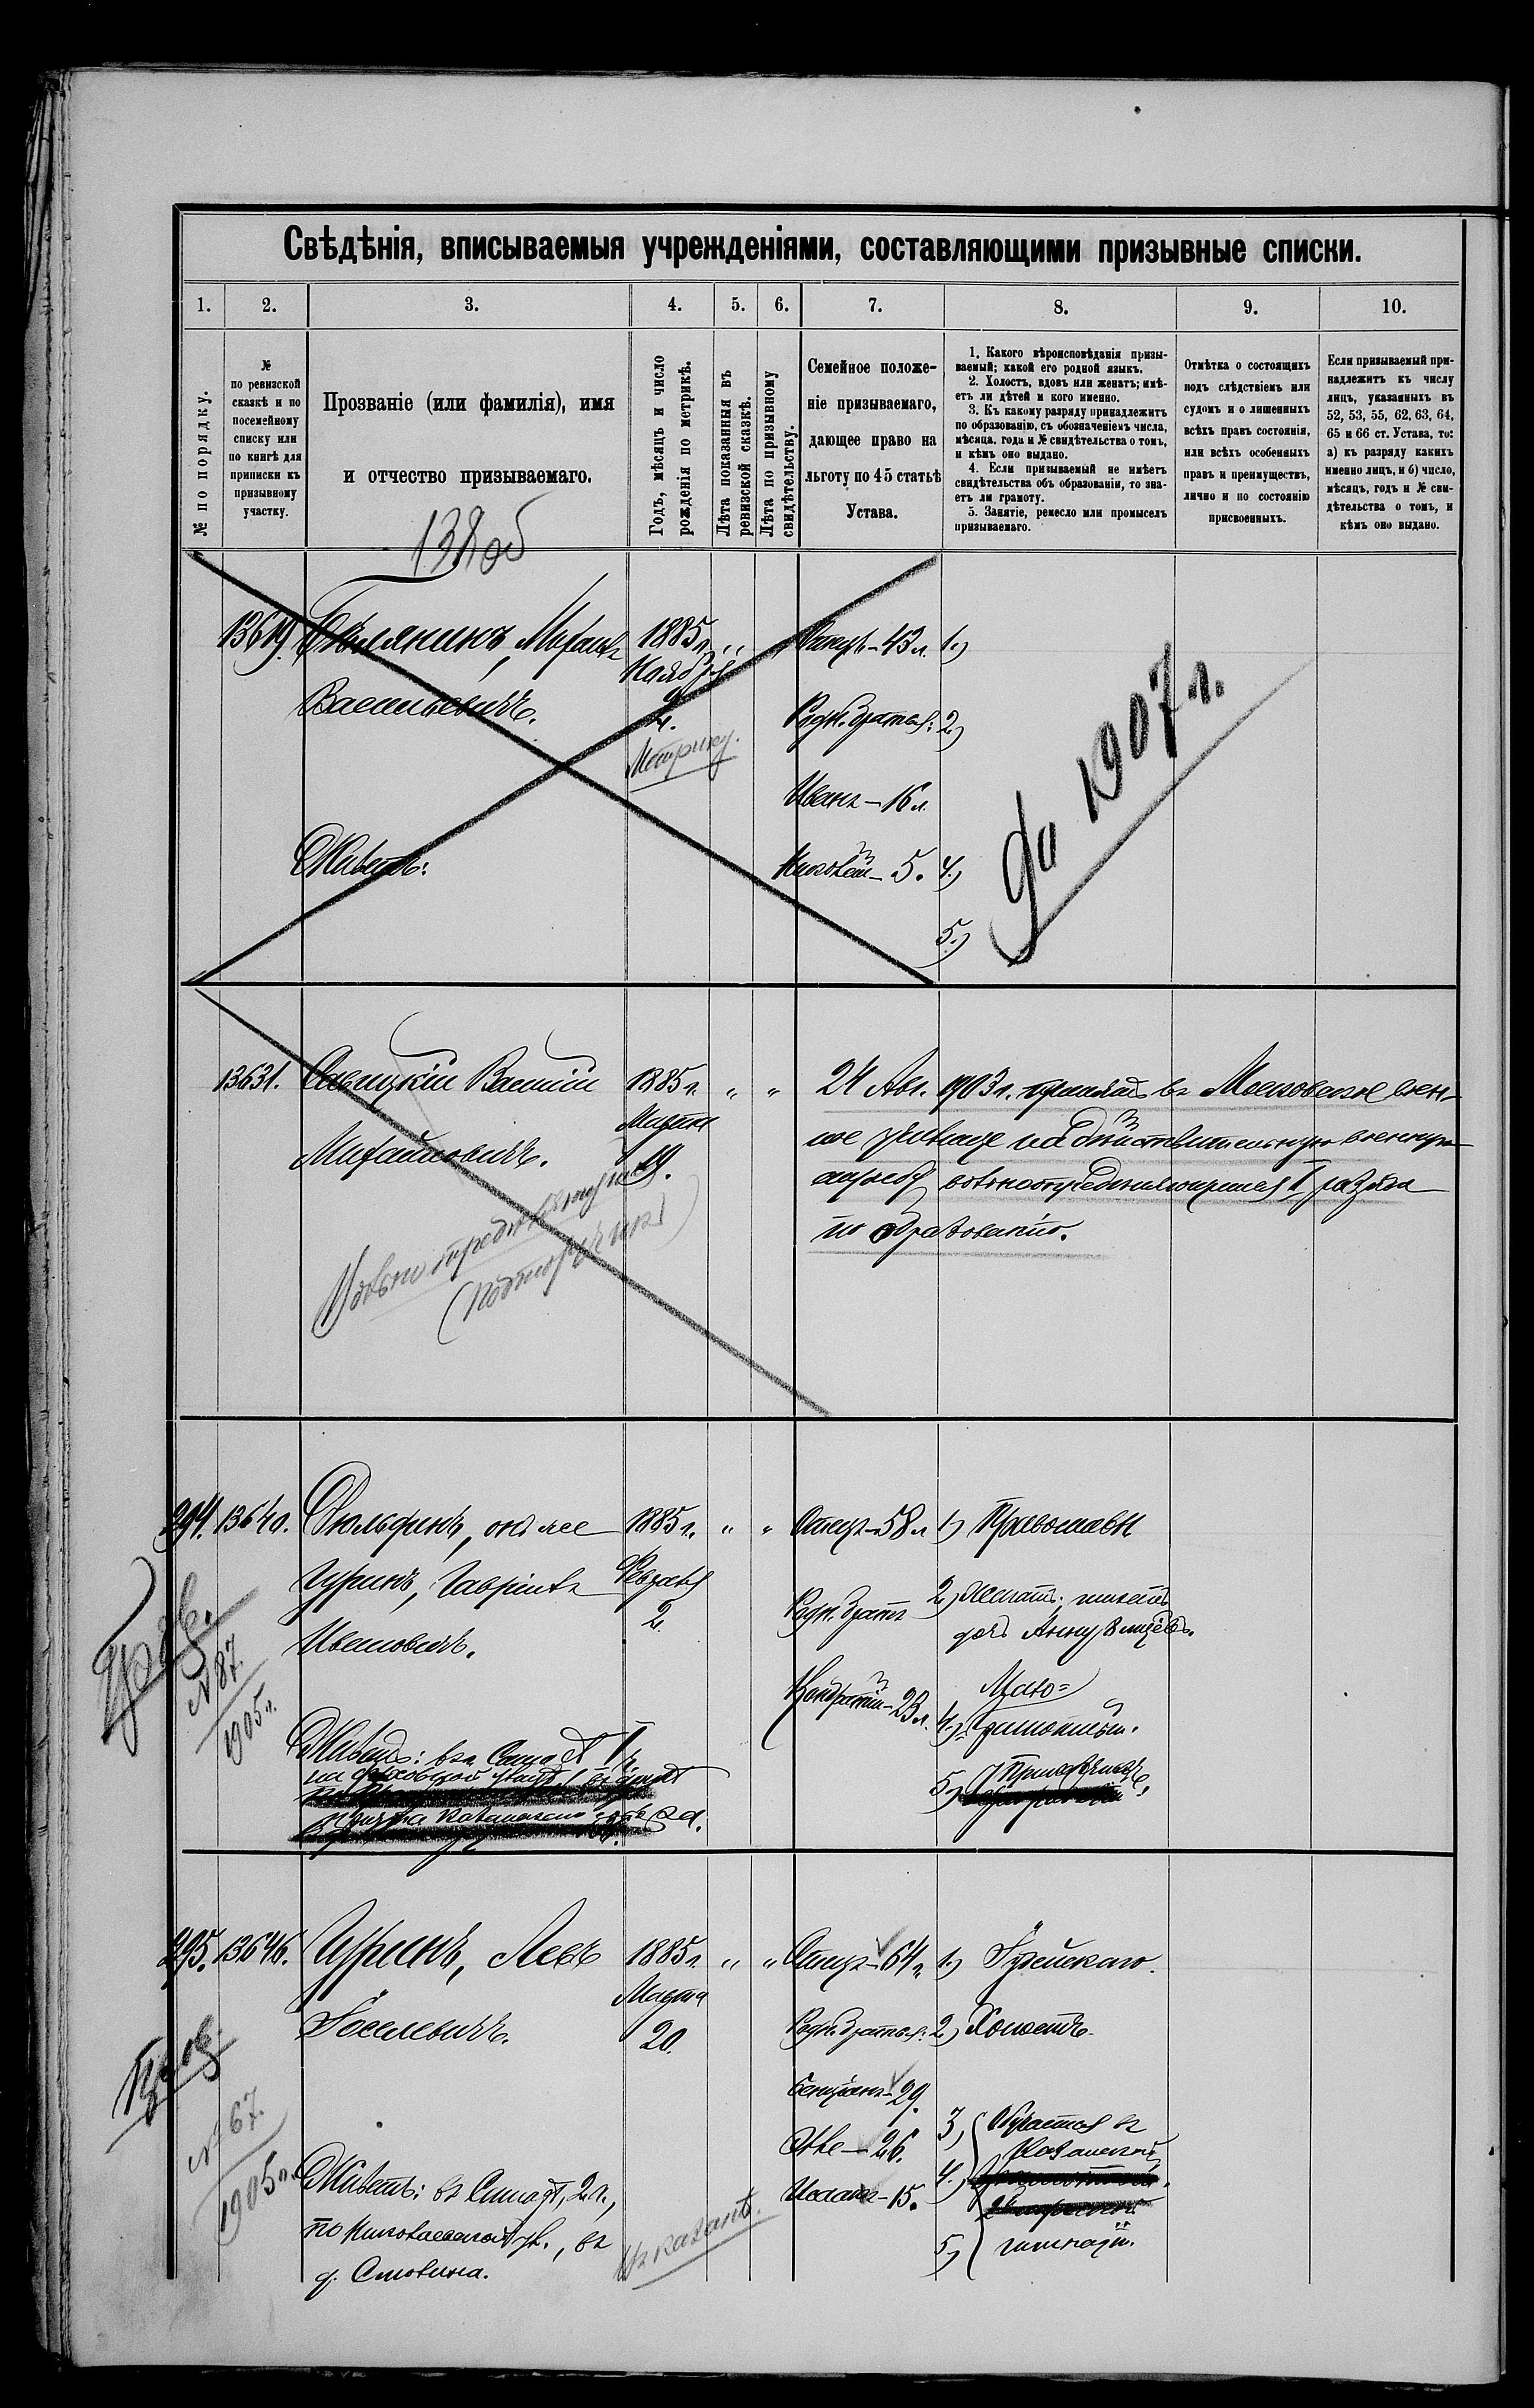 Свѣдѣнія, вписываемыя учрежденіями, составляющими призывные списки.
1. 2. 3. 4. 5. 6. 7. 8. 9. 10.
№ по порядку.
№
по ревизской
сказкѣ и по
посемейному
списку или
по книгѣ для
приписки къ
призывному
участку.
Прозваніе (или фамилія), имя
и отчество призываемаго.
Годъ, мѣсяцъ и число
рожденія по метрикѣ.
Лѣта показанныя въ
ревизской сказкѣ.
Лѣта по призывному
свидѣтельству.
Семейное положе-
ніе призываемаго,
дающее право на
льготу по 45 статьѣ
Устава.
1. Какого вѣроисповѣданія призы-
ваемый; какой его родной языкъ.
2. Холостъ, вдовъ или женатъ; имѣ-
етъ ли дѣтей и кого именно.
3. Къ какому разряду принадлежитъ
по образованію, съ обозначеніемъ числа,
мѣсяца, года и № свидѣтельства о томъ,
и кѣмъ оно выдано.
4. Если призываемый не имѣетъ
свидѣтельства объ образованіи, то зна-
етъ ли грамоту.
5. Занятіе, ремесло или промыселъ
призываемаго.
Отмѣтка о состоящихъ
подъ слѣдствіемъ или
судомъ и о лишенныхъ
всѣхъ правъ состоянія,
или всѣхъ особенныхъ
правъ и преимуществъ,
лично и по состоянію
присвоенныхъ.
Если призываемый при-
надлежитъ къ числу
лицъ, указанныхъ въ
52, 53, 55, 62, 63, 64,
65 и 66 ст. Устава, то:
а) къ разряду какихъ
именно лицъ, и б) число,
мѣсяцъ, годъ и № сви-
дѣтельства о томъ, и
кѣмъ оно выдано.
13619.
Михаилъ
Васильевичъ.
Живетъ:
1885 г.
Ноября
4.
Метрику.
Отецъ - 43 л.
Родн. братья:
Иванъ - 16 л.
Николай - 5.
1.)
2.)
4.)
5.)
До 1907 г.
13631.
Савицкій Василій
Михайловичъ.
1885 г.
Марта
19.
" "
24 Авг. 1903 г. принятъ въ Московское воен-
ное училище на дѣйствительную военную
службу вольноопредѣляющимся I разряда
по образованію.
Вольноопредѣляющійся
294. 13640.
Сюльфинъ, онъ же
Гуринъ, Гавріилъ
Ивановичъ.
1885 г.
Февраля
2.
" "
Отецъ - 58 л.
Родн. братъ
Кондратій - 23 л.
1) Православн.
2) Женатъ; имѣетъ
дочь Анну
Мало=
4.) грамотный.
5.) Приказчикъ.
№ 87.
1905 г.
Живетъ: въ г. Самарѣ
295. 13646.
Гуринъ, Левъ
Іоселевичъ.
1885 г.
Марта
20.
" "
Отецъ - 64 г.
Родн. братья:
Бенціанъ - 29.
26.
Исаакъ - 15.
1.) Іудейскаго.
2.) Холостъ.
3.) Обучается въ
Казанской
4.)
5.) гимназіи.
№ 67.
1905 г.
Живетъ: въ Самарѣ, 2 ч.,
по Николаевской ул., въ
д. Смовина.